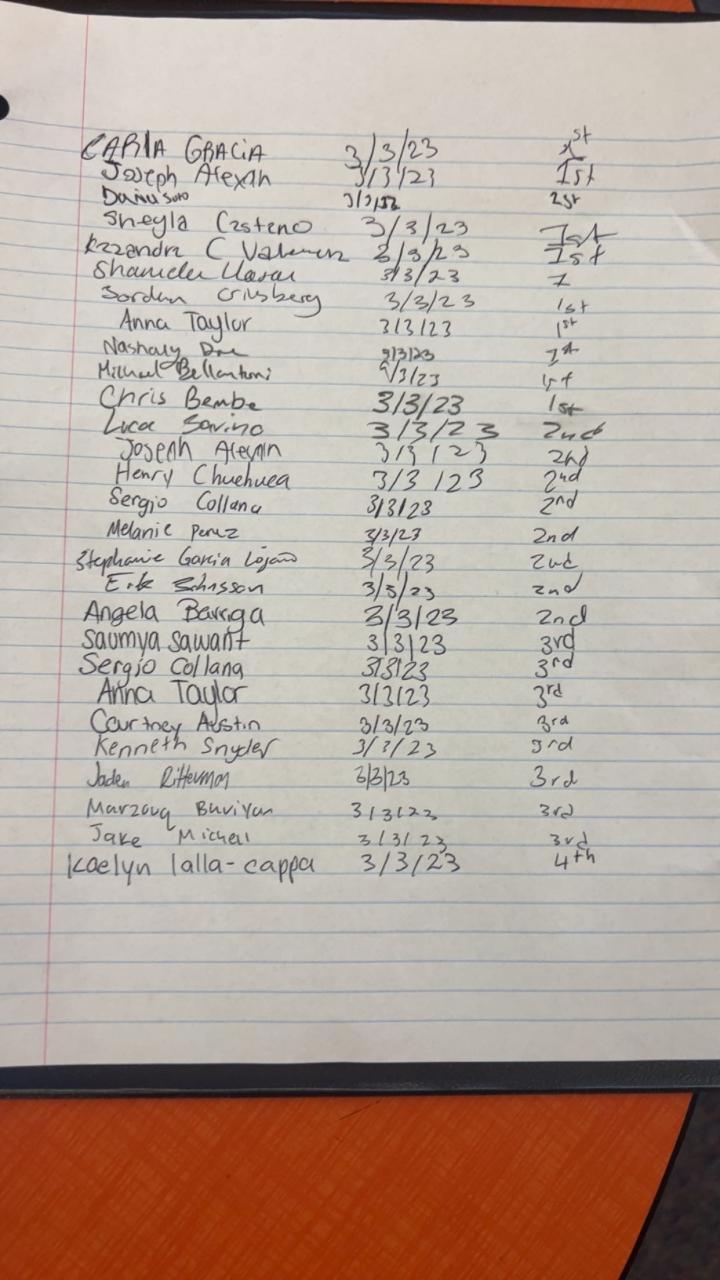 CARLA GRACIA 3/3/23 1st
Joseph Alexan 3/3/23 1st
Soto 1st
Sheyla Casteno 3/3/23 1st
Kazandra C 3/3/23 1st
3/3/23 1
Jordan 3/3/23 1st
Anna Taylor 3/3/23 1st
Nashaly 3/3/23 1st
Michael Bellantoni 3/3/23 1st
Chris Bembe 3/3/23 1st
Luca Savino 3/3/23 2nd
Joseph 3/3/23 2nd
Henry Chuehuea 3/3/23 2nd
Sergio Collana 3/3/23 2nd
Melanie Perez 3/3/23 2nd
Stephanie Garcia Lojano 3/3/23 2nd
Erik 3/3/23 2nd
Angela Barriga 3/3/23 2nd
Saumya Sawant 3/3/23 3rd
Sergio Collana 3/3/23 3rd
Anna Taylor 3/3/23 3rd
Courtney Austin 3/3/23 3rd
Kenneth Snyder 3/3/23 3rd
Jaden Ritterman 3/3/23 3rd
Marzouq 3/3/23 3rd
Jake Michel 3/3/23 3rd
Kaelyn lalla-cappa 3/3/23 4th